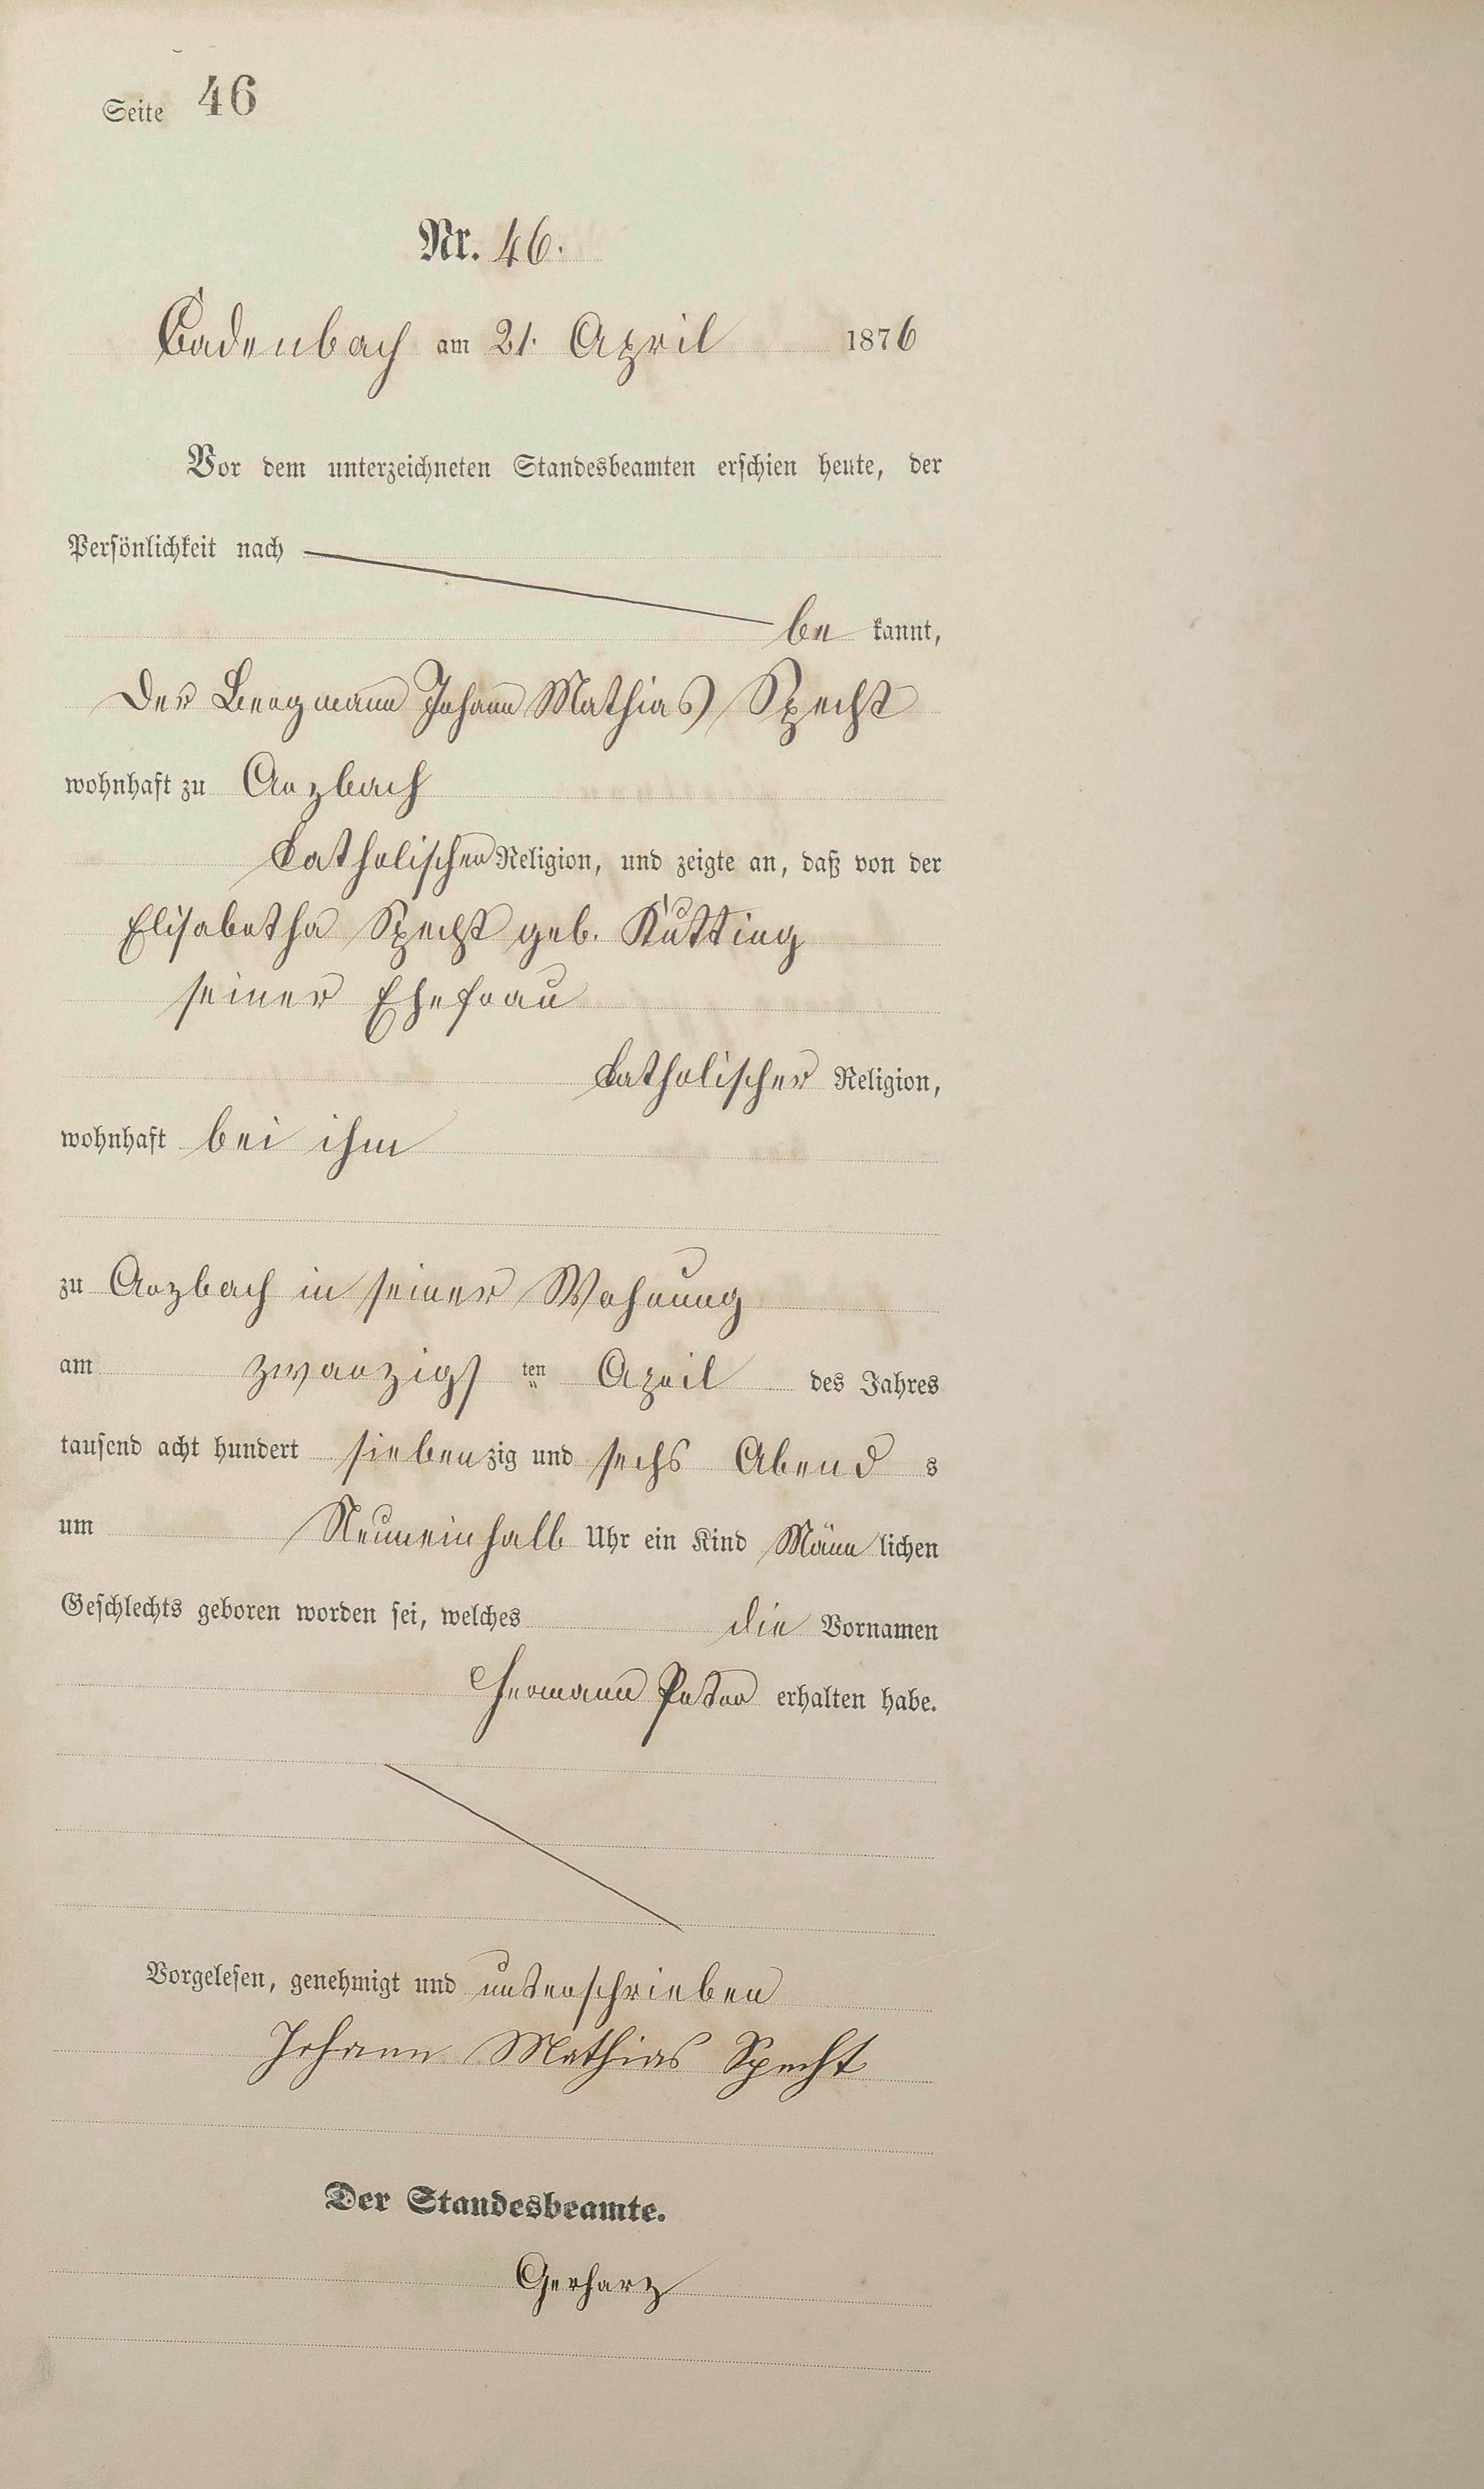 Seite 46
Nr. 46.
Cadenbach am 21. April 1876
Vor dem unterzeichneten Standesbeamten erschien heute, der
Persönlichkeit nach
be kannt,
der Bergmann Johann Mathias Specht
wohnhaft zu Arzbach
katholischer Religion, und zeigte an, daß von der
Elisabetha Specht geb. Kütting
seiner Ehefrau
katholischer Religion,
wohnhaft bei ihm
zu Arzbach in seiner Wohnung
am zwanzigs ten April des Jahres
tausend acht hundert siebenzig und sechs Abend s
um Neuneinhalb Uhr ein Kind Männ lichen
Geschlechts geboren worden sei, welches die Vornamen
Hermann Peter erhalten habe.
Vorgelesen, genehmigt und unterschrieben
Johann Mathias Specht
Der Standesbeamte.
Gerharz